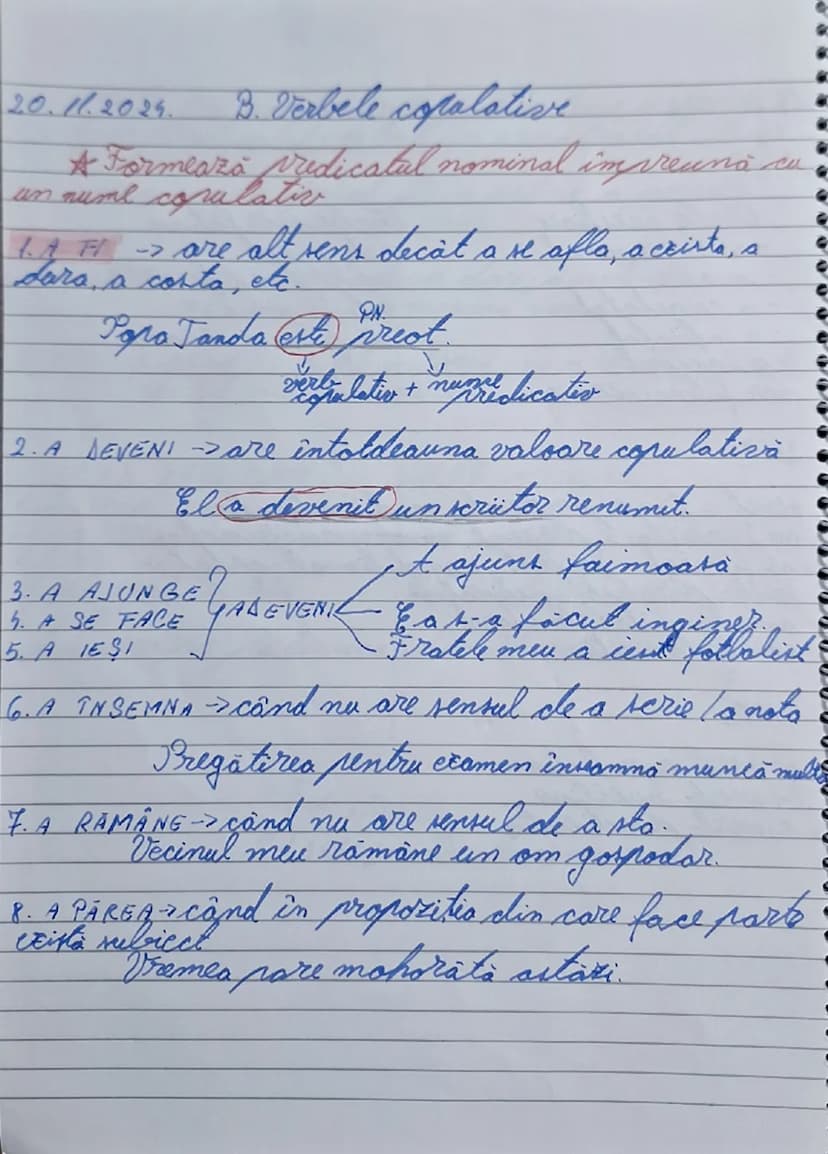 20.11.2024. B. Verbele copulative
* Formează predicatul nominal împreună cu
un nume copulativ
1. A FI -> are alt sens decât a se afla, a exista, a
dura, a costa, etc.
PN.
Popa Tanda este preot.
verb copulativ + nume predicativ
2. A DEVENI -> are întotdeauna valoare copulativă
El a devenit un scriitor renumit.
A ajuns faimoasă
3. A AJUNGE
4. A SE FACE } A DEVENI Ea s-a făcut inginer.
5. A IEȘI Fratele meu a ieșit fotbalist
6. A ÎNSEMNA -> când nu are sensul de a scrie / a nota
Pregătirea pentru examen înseamnă muncă multă
7. A RĂMÂNE -> când nu are sensul de a sta.
Vecinul meu rămâne un om gospodar.
8. A PĂREA -> când în propoziția din care face parte
există subiect
Vremea pare mohorâtă astăzi.